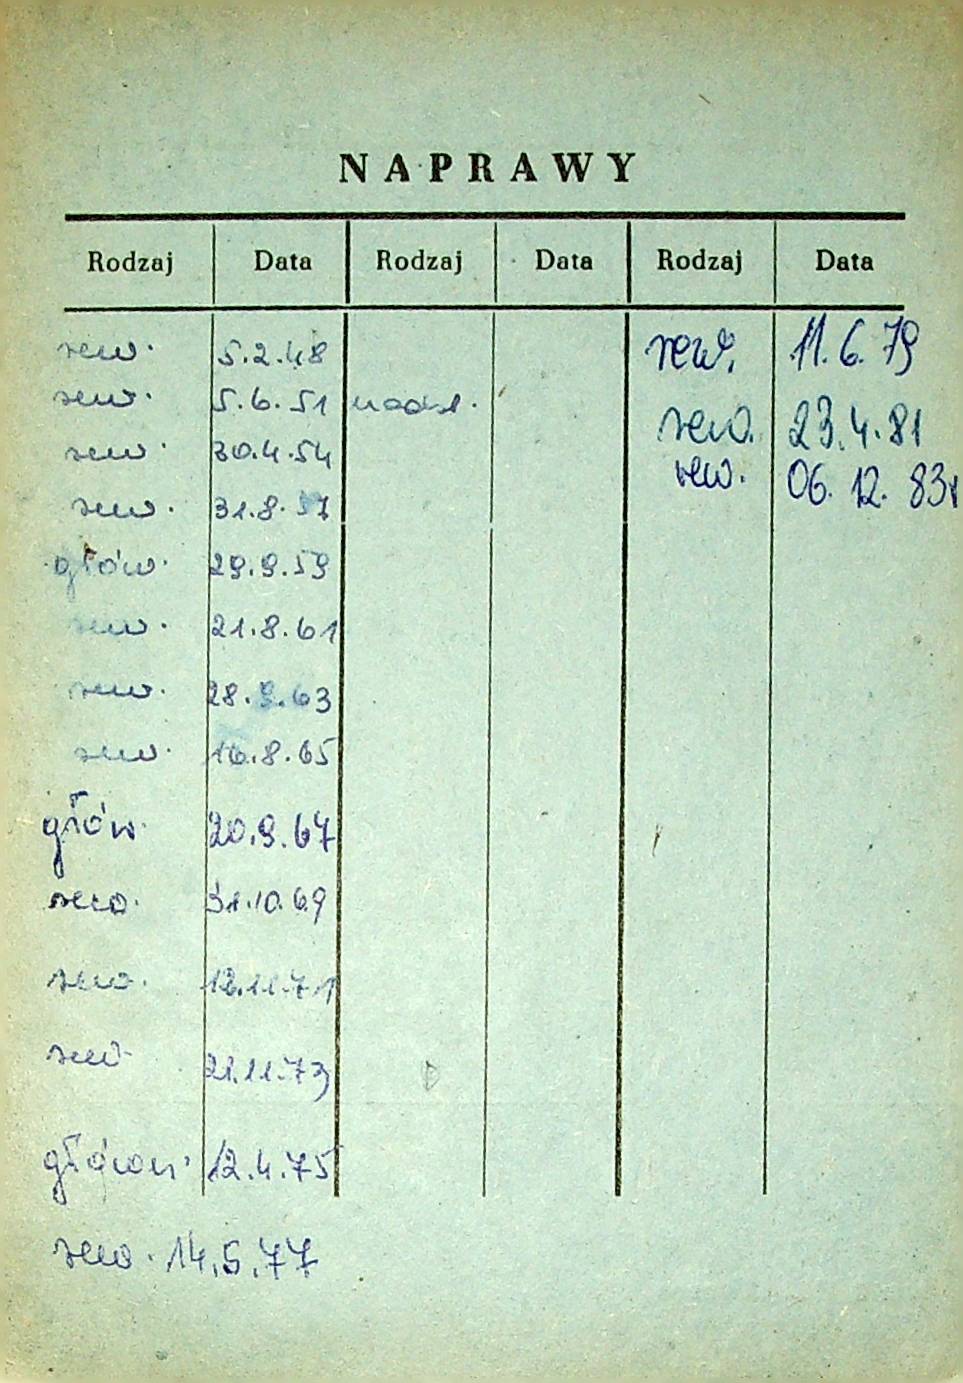 NAPRAWY
Rodzaj Data Rodzaj Data Rodzaj Data
rew. 5.2.48 rew. 11.6.79
rew. 5.6.51 nadzl. rew. 23.4.81
rew. 30.4.54 rew. 06.12.83r
rew. 31.8.57
głów. 29.9.59
rew. 21.8.61
rew. 28.9.63
rew. 16.8.65
głów. 20.9.67
rew. 31.10.69
rew. 12.11.71
rew. 21.11.73
główn. 12.4.75
rew. 14.5.77